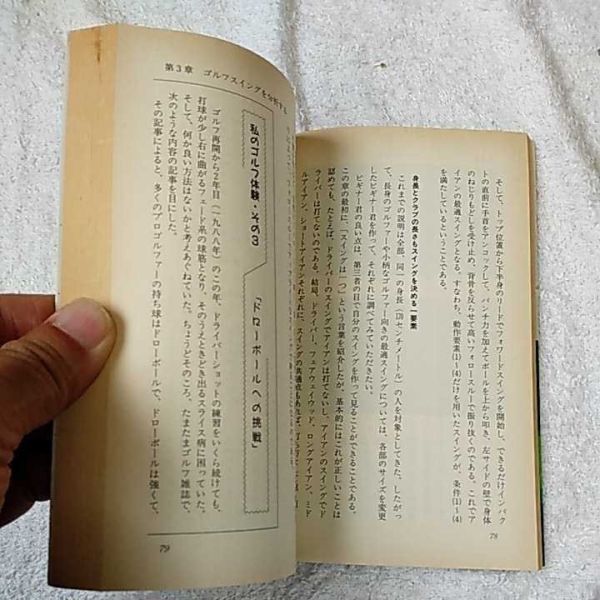 そして、トップ位置から下半身のリードでフォワードスイングを開始し、できるだけインパク
トの直前に手首をアンコックして、パンチ力を加えてボールを上から叩き、左サイドの壁で身体
のねじりもどしを受け止め、背骨を反らせて高いフォロースルーで振り抜くのである。これでア
イアンの最適スイングとなる。すなわち、動作要素(1)～(4)だけを用いたスイングが、条件(1)～(4)
を満たしているということである。
身長とクラブの長さもスイングを決める一要素
これまでの説明は全部、同一の身長(170センチメートル)の人を対象としてきた。したがっ
て、長身のゴルファーや小柄なゴルファー向きの最適スイングについては、各部のサイズを変更
したビギナー君を作って、それぞれに調べてみていただきたい。
ビギナー君の良い点は、第三者の目で自分のスイングを作って見ることができることである。
この章の最初に、「スイングは一つ」という言葉を紹介したが、基本的にはこれが正しいことは
認めても、たとえば、ドライバーのスイングでアイアンは打てないし、アイアンのスイングでド
ライバーは打てないのである。結局、ドライバー、フェアウェイウッド、ロングアイアン、ミド
ルアイアン、ショートアイアンそれぞれに、スイングの共通点もあれば、
78
第3章 ゴルフスイングを分析する
私のゴルフ体験・その3
「ドローボールへの挑戦」
ゴルフ再開から2年目(一九八八年)のこの年、ドライバーショットの練習をいくら続けても、
打球が少し右に曲がるフェード系の球筋となり、そのうえときどき出るスライス病に困っていた。
そして、何か良い方法はないかと考えあぐねていた。ちょうどそのころ、たまたまゴルフ雑誌で、
次のような内容の記事を目にした。
その記事によると、多くのプロゴルファーの持ち球はドローボールで、ドローボールは強くて、
79